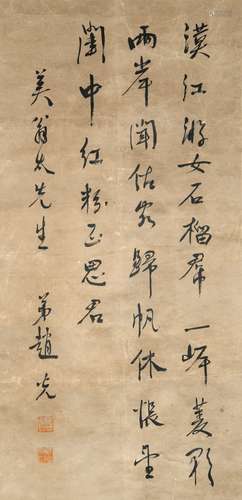 漢江游女石榴裙一岸菱歌
两岸聞估客歸帆休悵望
閨中红粉正思君
美翁太先生 弟趙光